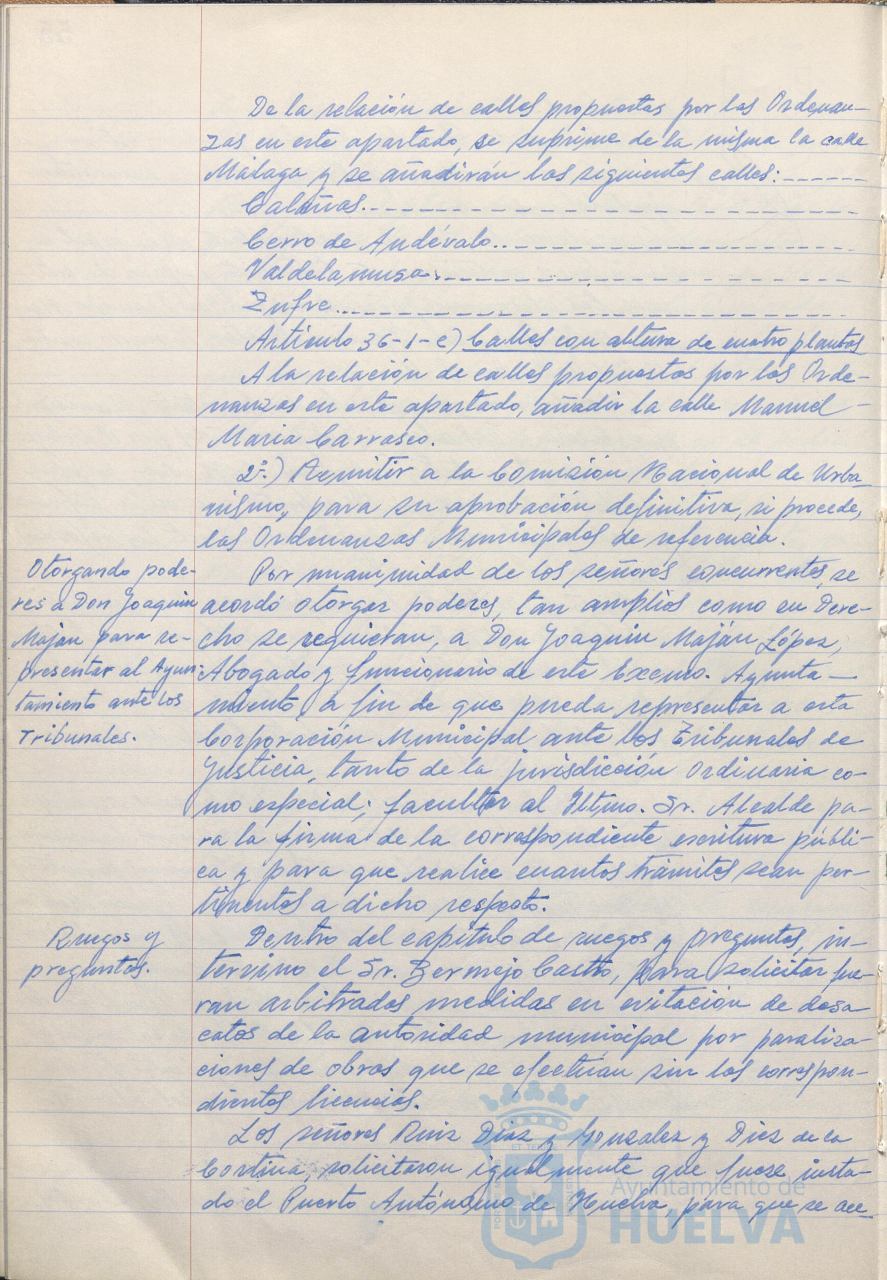 De la relación de calles propuestas por las Ordenan-
zas en este apartado, se suprime de la misma la calle
Málaga y se añadirán las siguientes calles:------
Calañas.------
Cerro de Andévalo.------
Valdelamusa.------
Zufre.------
Artículo 36-1-c) Calles con altura de cuatro plantas
A la relación de calles propuestas por las Orde-
nanzas en este apartado, añadir la calle Manuel
Maria Carrasco.
2º.) Remitir a la Comisión Nacional de Urba-
nismo, para su aprobación definitiva, si procede,
las Ordenanzas Municipales de referencia.
Otorgando pode-
res a Don Joaquin
Maján para re-
presentar al Ayun-
tamiento ante los
Tribunales.
Por unanimidad de los señores concurrentes, se
acordó otorgar poderes, tan amplios como en Dere-
cho se requieran, a Don Joaquin Maján López,
Abogado y funcionario de este Excmo. Ayunta-
miento, a fin de que pueda representar a esta
Corporación Municipal ante los Tribunales de
Justicia, tanto de la jurisdicción Ordinaria co-
mo especial; facultar al Iltmo. Sr. Alcalde pa-
ra la firma de la correspondiente escritura públi-
ca y para que realice cuantos trámites sean per-
tinentes a dicho respecto.
Ruegos y
preguntas.
Dentro del capítulo de ruegos y preguntas, in-
tervino el Sr. Bermejo Castro, para solicitar fue-
ran arbitradas medidas en evitación de desa-
catos de la autoridad municipal por paraliza-
ciones de obras que se efectúan sin las correspon-
dientes licencias.
Los señores Ruiz Diaz y Gonzalez y Diez de la
Cortina, solicitaron igualmente que fuese insta-
do el Puerto Autónomo de Huelva para que se ace-
Ayuntamiento de
HUELVA